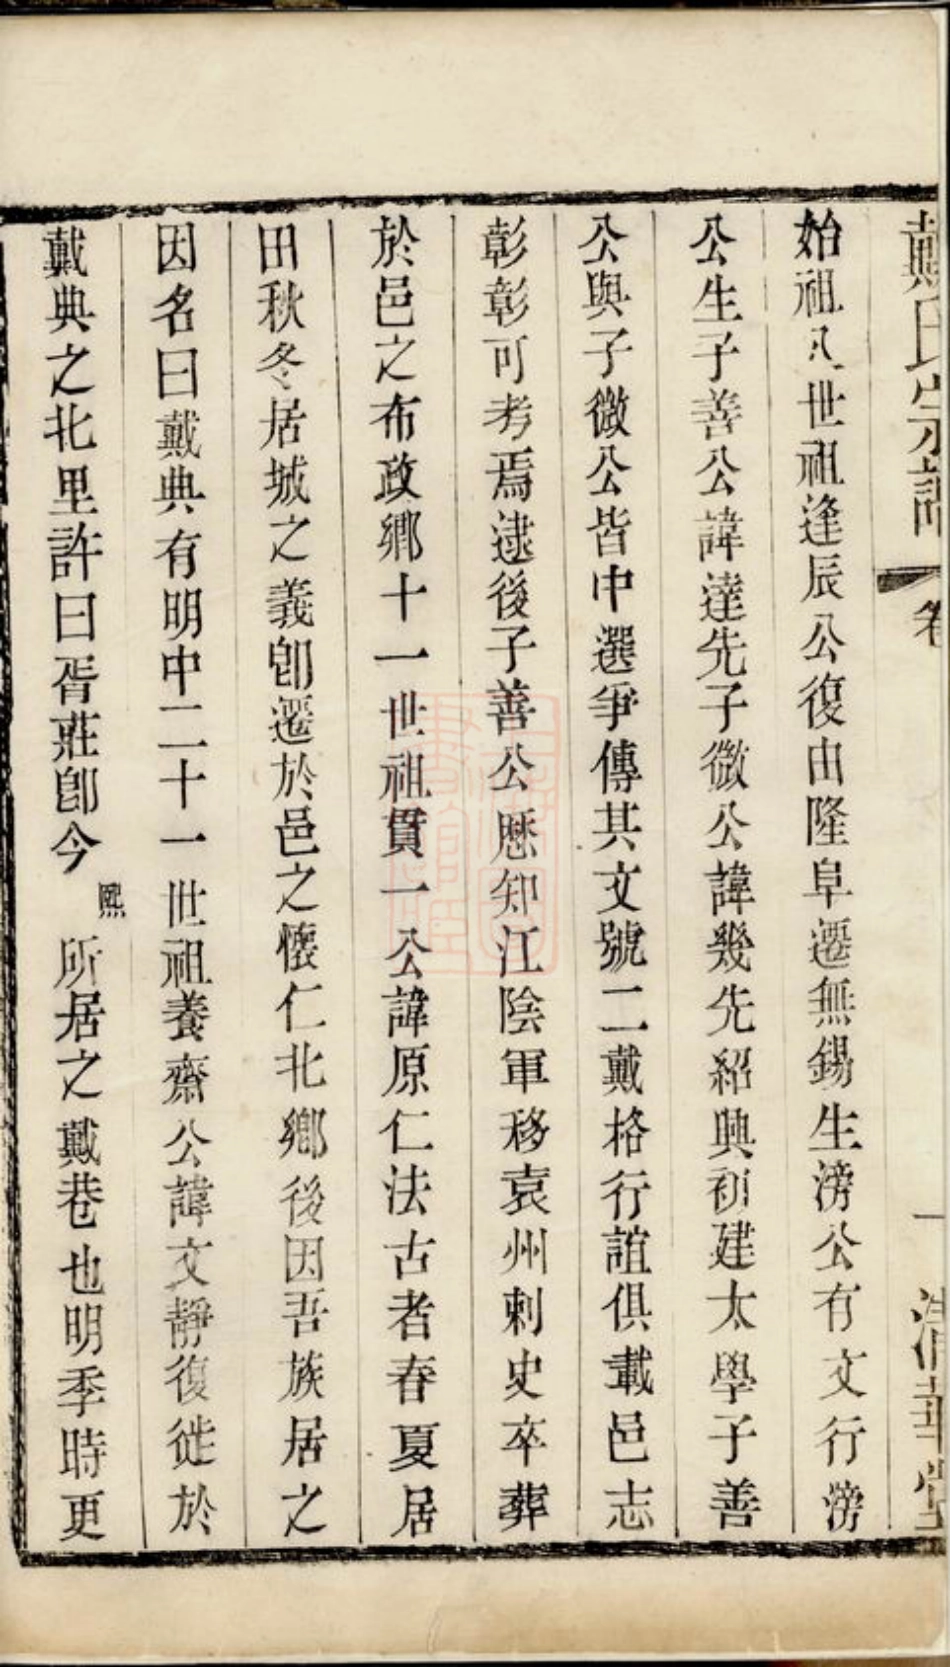 戴氏宗譜 卷 一 清華堂
始祖八世祖逢辰公復由隆阜遷無錫生滂公有文行滂
公生子善公諱達先子微公諱幾先紹興初建太學子善
公與子微公皆中選爭傳其文號二戴格行誼俱載邑志
彰彰可考焉逮後子善公歷知江陰軍移袁州刺史卒葬
於邑之布政鄉十一世祖貫一公諱原仁法古者春夏居
田秋冬居城之義卽遷於邑之懷仁北鄉後因吾族居之
因名曰戴典有明中二十一世祖養齋公諱文靜復徙於
戴典之北里許曰胥莊卽今熙所居之戴巷也明季時更